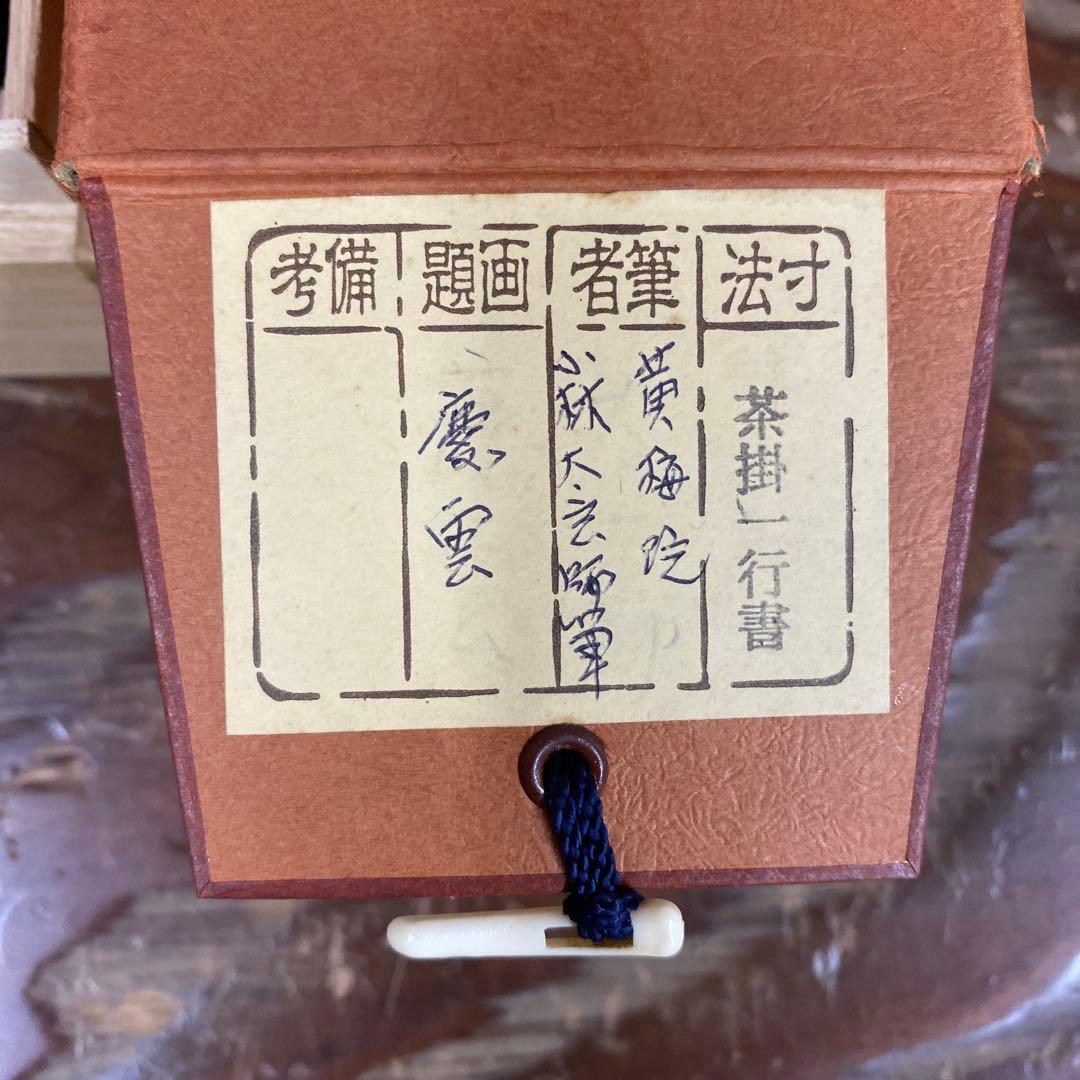 寸法
茶掛一行書
筆者
黄梅院
小林太玄師筆
画題
慶雲
備考